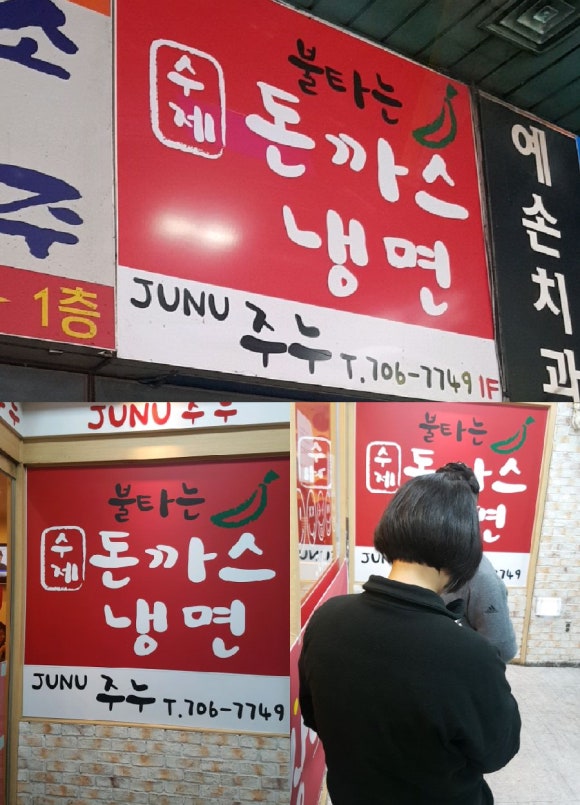 소
주
1층
불타는
수제
돈까스
냉면
JUNU 주누 T.706-7749 1F
예손치과
JUNU 주누
불타는
수제
돈까스
냉면
JUNU 주누 T.706-7749
불타는
수제
돈까스
면
JU
7749